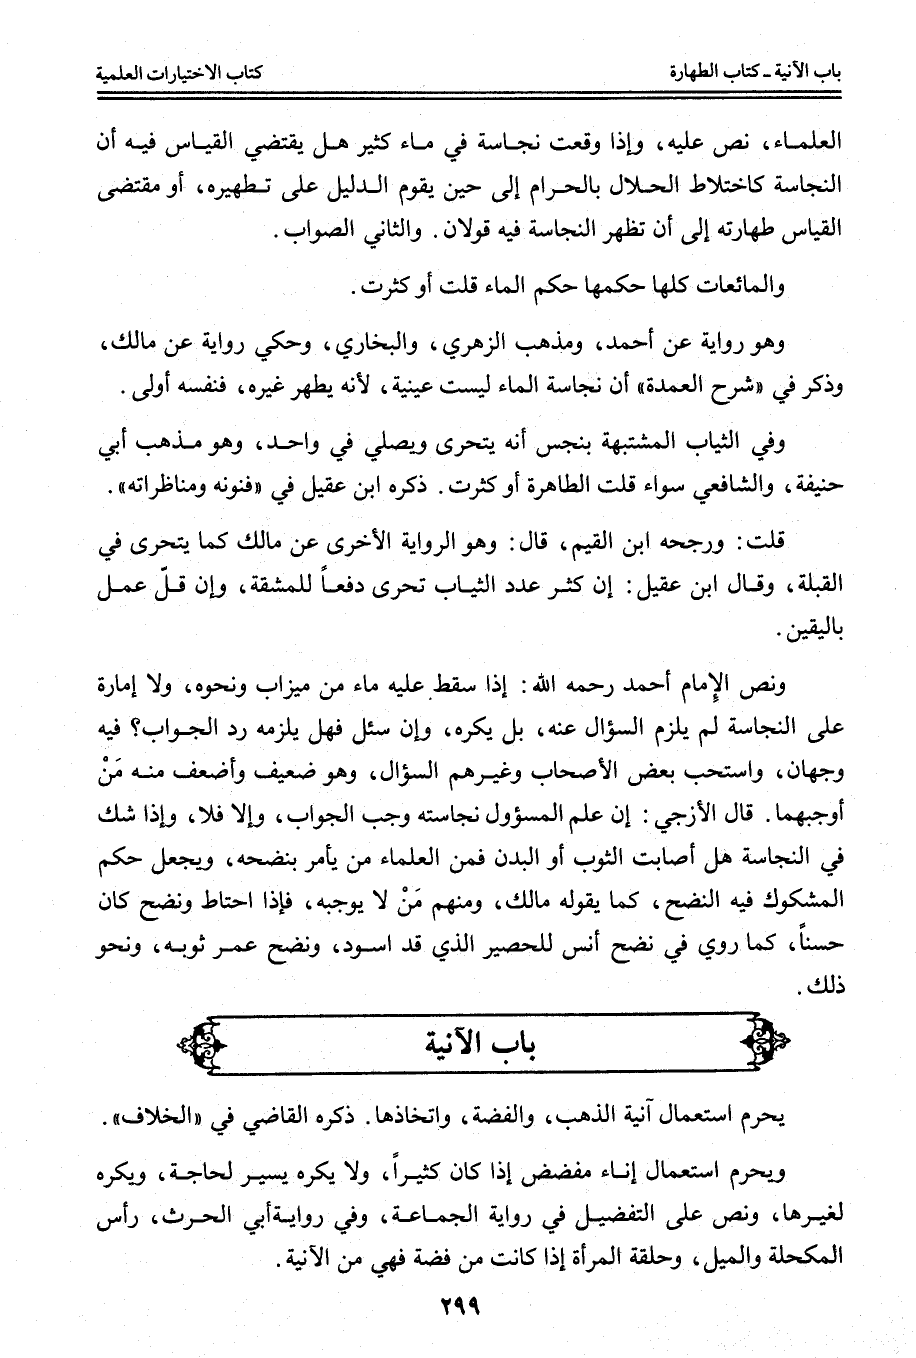 باب الآنية ـ كتاب الطهارة
كتاب الاختيارات العلمية
العلماء، نص عليه، وإذا وقعت نجاسة في ماء كثير هل يقتضي القياس فيه أن
النجاسة كاختلاط الحلال بالحرام إلى حين يقوم الدليل على تطهيره، أو مقتضى
القياس طهارته إلى أن تظهر النجاسة فيه قولان. والثاني الصواب.
والمائعات كلها حكمها حكم الماء قلت أو كثرت.
وهو رواية عن أحمد، ومذهب الزهري، والبخاري، وحكي رواية عن مالك،
وذكر في «شرح العمدة» أن نجاسة الماء ليست عينية، لأنه يطهر غيره، فنفسه أولى.
وفي الثياب المشتبهة بنجس أنه يتحرى ويصلي في واحد، وهو مذهب أبي
حنيفة، والشافعي سواء قلت الطاهرة أو كثرت. ذكره ابن عقيل في «فنونه ومناظراته».
قلت: ورجحه ابن القيم، قال: وهو الرواية الأخرى عن مالك كما يتحرى في
القبلة، وقال ابن عقيل: إن كثر عدد الثياب تحرى دفعاً للمشقة، وإن قلّ عمل
باليقين.
ونص الإمام أحمد رحمه الله: إذا سقط عليه ماء من ميزاب ونحوه، ولا إمارة
على النجاسة لم يلزم السؤال عنه، بل يكره، وإن سئل فهل يلزمه رد الجواب؟ فيه
وجهان، واستحب بعض الأصحاب وغيرهم السؤال، وهو ضعيف وأضعف منه مَنْ
أوجبهما. قال الأزجي: إن علم المسؤول نجاسته وجب الجواب، وإلا فلا، وإذا شك
في النجاسة هل أصابت الثوب أو البدن فمن العلماء من يأمر بنضحه، ويجعل حكم
المشكوك فيه النضح، كما يقوله مالك، ومنهم مَنْ لا يوجبه، فإذا احتاط ونضح كان
حسناً، كما روي في نضح أنس للحصير الذي قد اسود، ونضح عمر ثوبه، ونحو
ذلك.
باب الآنية
يحرم استعمال آنية الذهب، والفضة، واتخاذها. ذكره القاضي في «الخلاف».
ويحرم استعمال إناء مفضض إذا كان كثيراً، ولا يكره يسير لحاجة، ويكره
لغيرها، ونص على التفضيل في رواية الجماعة، وفي رواية أبي الحرث، رأس
المكحلة والميل، وحلقة المرأة إذا كانت من فضة فهي من الآنية.
٢٩٩